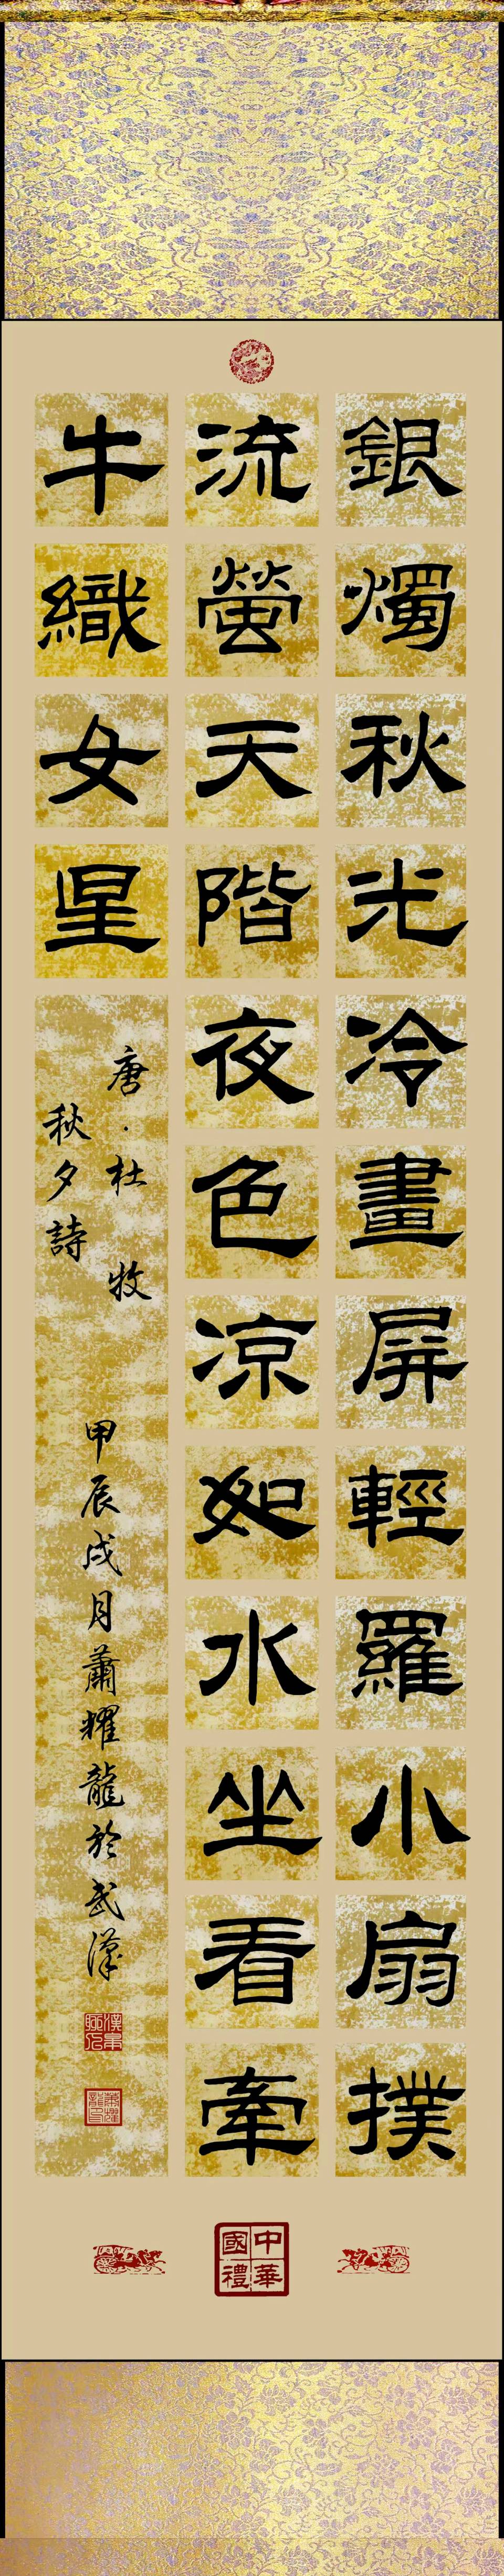 銀燭秋光冷畫屏輕羅小扇撲
流螢天階夜色凉如水坐看牽
牛織女星
唐·杜牧
秋夕詩
甲辰戌月蕭耀龍於武漢
蕭耀龍印
中華國禮